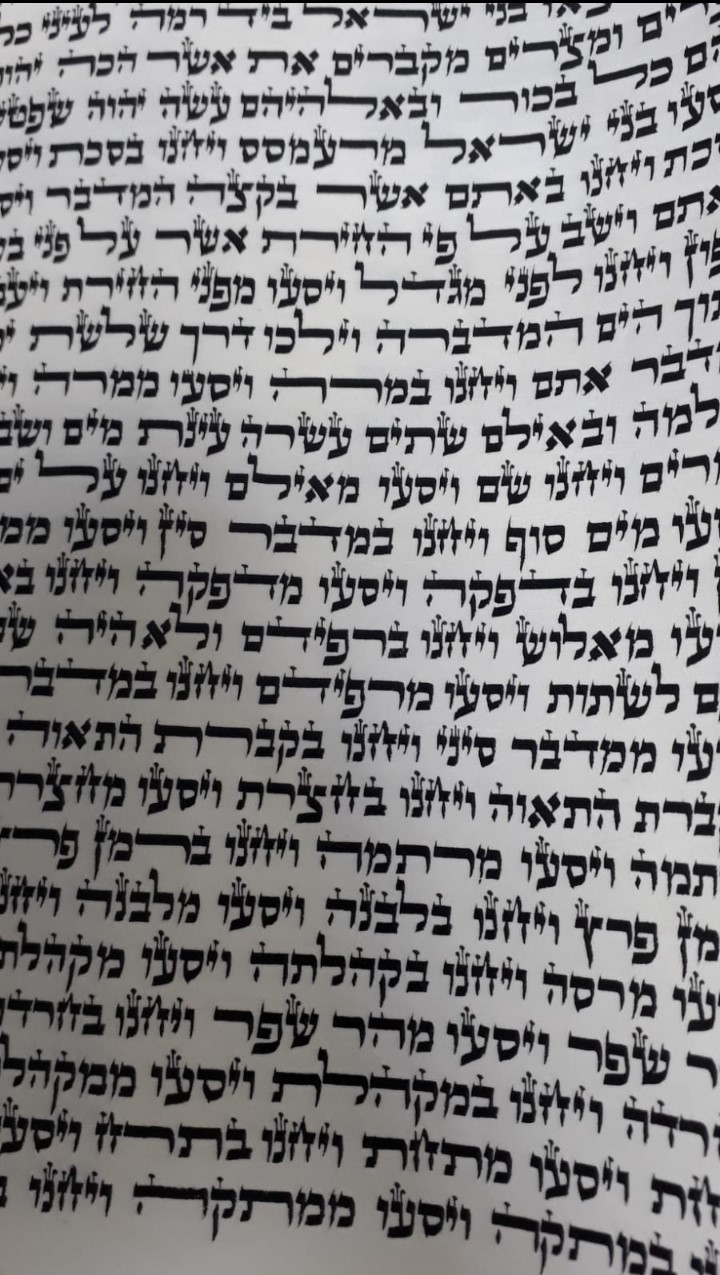 או בני ישראל ביד רמה לעיני כל
רים ומצרים מקברים את אשר הכה יהו
הם כל בכור ובאלהיהם עשה יהוה שפטי
סעו בני ישראל מרעמסס ויחנו בסכת ויסע
כת ויחנו באתם אשר בקצה המדבר ויס
אתם וישב על פי החירת אשר על פני בע
פון ויחנו לפני מגדל ויסעו מפני החירת ויעב
תוך הים המדברה וילכו דרך שלשת י
דבר אתם ויחנו במרה ויסעו ממרה וי
למה ובאילם שתים עשרה עינת מים ושב
רים ויחנו שם ויסעו מאילם ויחנו על ים
סעו מים סוף ויחנו במדבר סין ויסעו ממ
ויחנו בדפקה ויסעו מדפקה ויחנו בא
עו מאלוש ויחנו ברפידם ולא היה ש
ם לשתות ויסעו מרפידם ויחנו במדבר
עו ממדבר סיני ויחנו בקברת התאוה
ברת התאוה ויחנו בחצרת ויסעו מחצרת
תמה ויסעו מרתמה ויחנו ברמן פרץ
מן פרץ ויחנו בלבנה ויסעו מלבנה ויחנו
עו מרסה ויחנו בקהלתה ויסעו מקהלת
ר שפר ויסעו מהר שפר ויחנו בחרד
רדה ויחנו במקהלת ויסעו ממקהל
חת ויסעו מתחת ויחנו בתרח ויסע
במתקה ויסעו ממתקה ויחנו